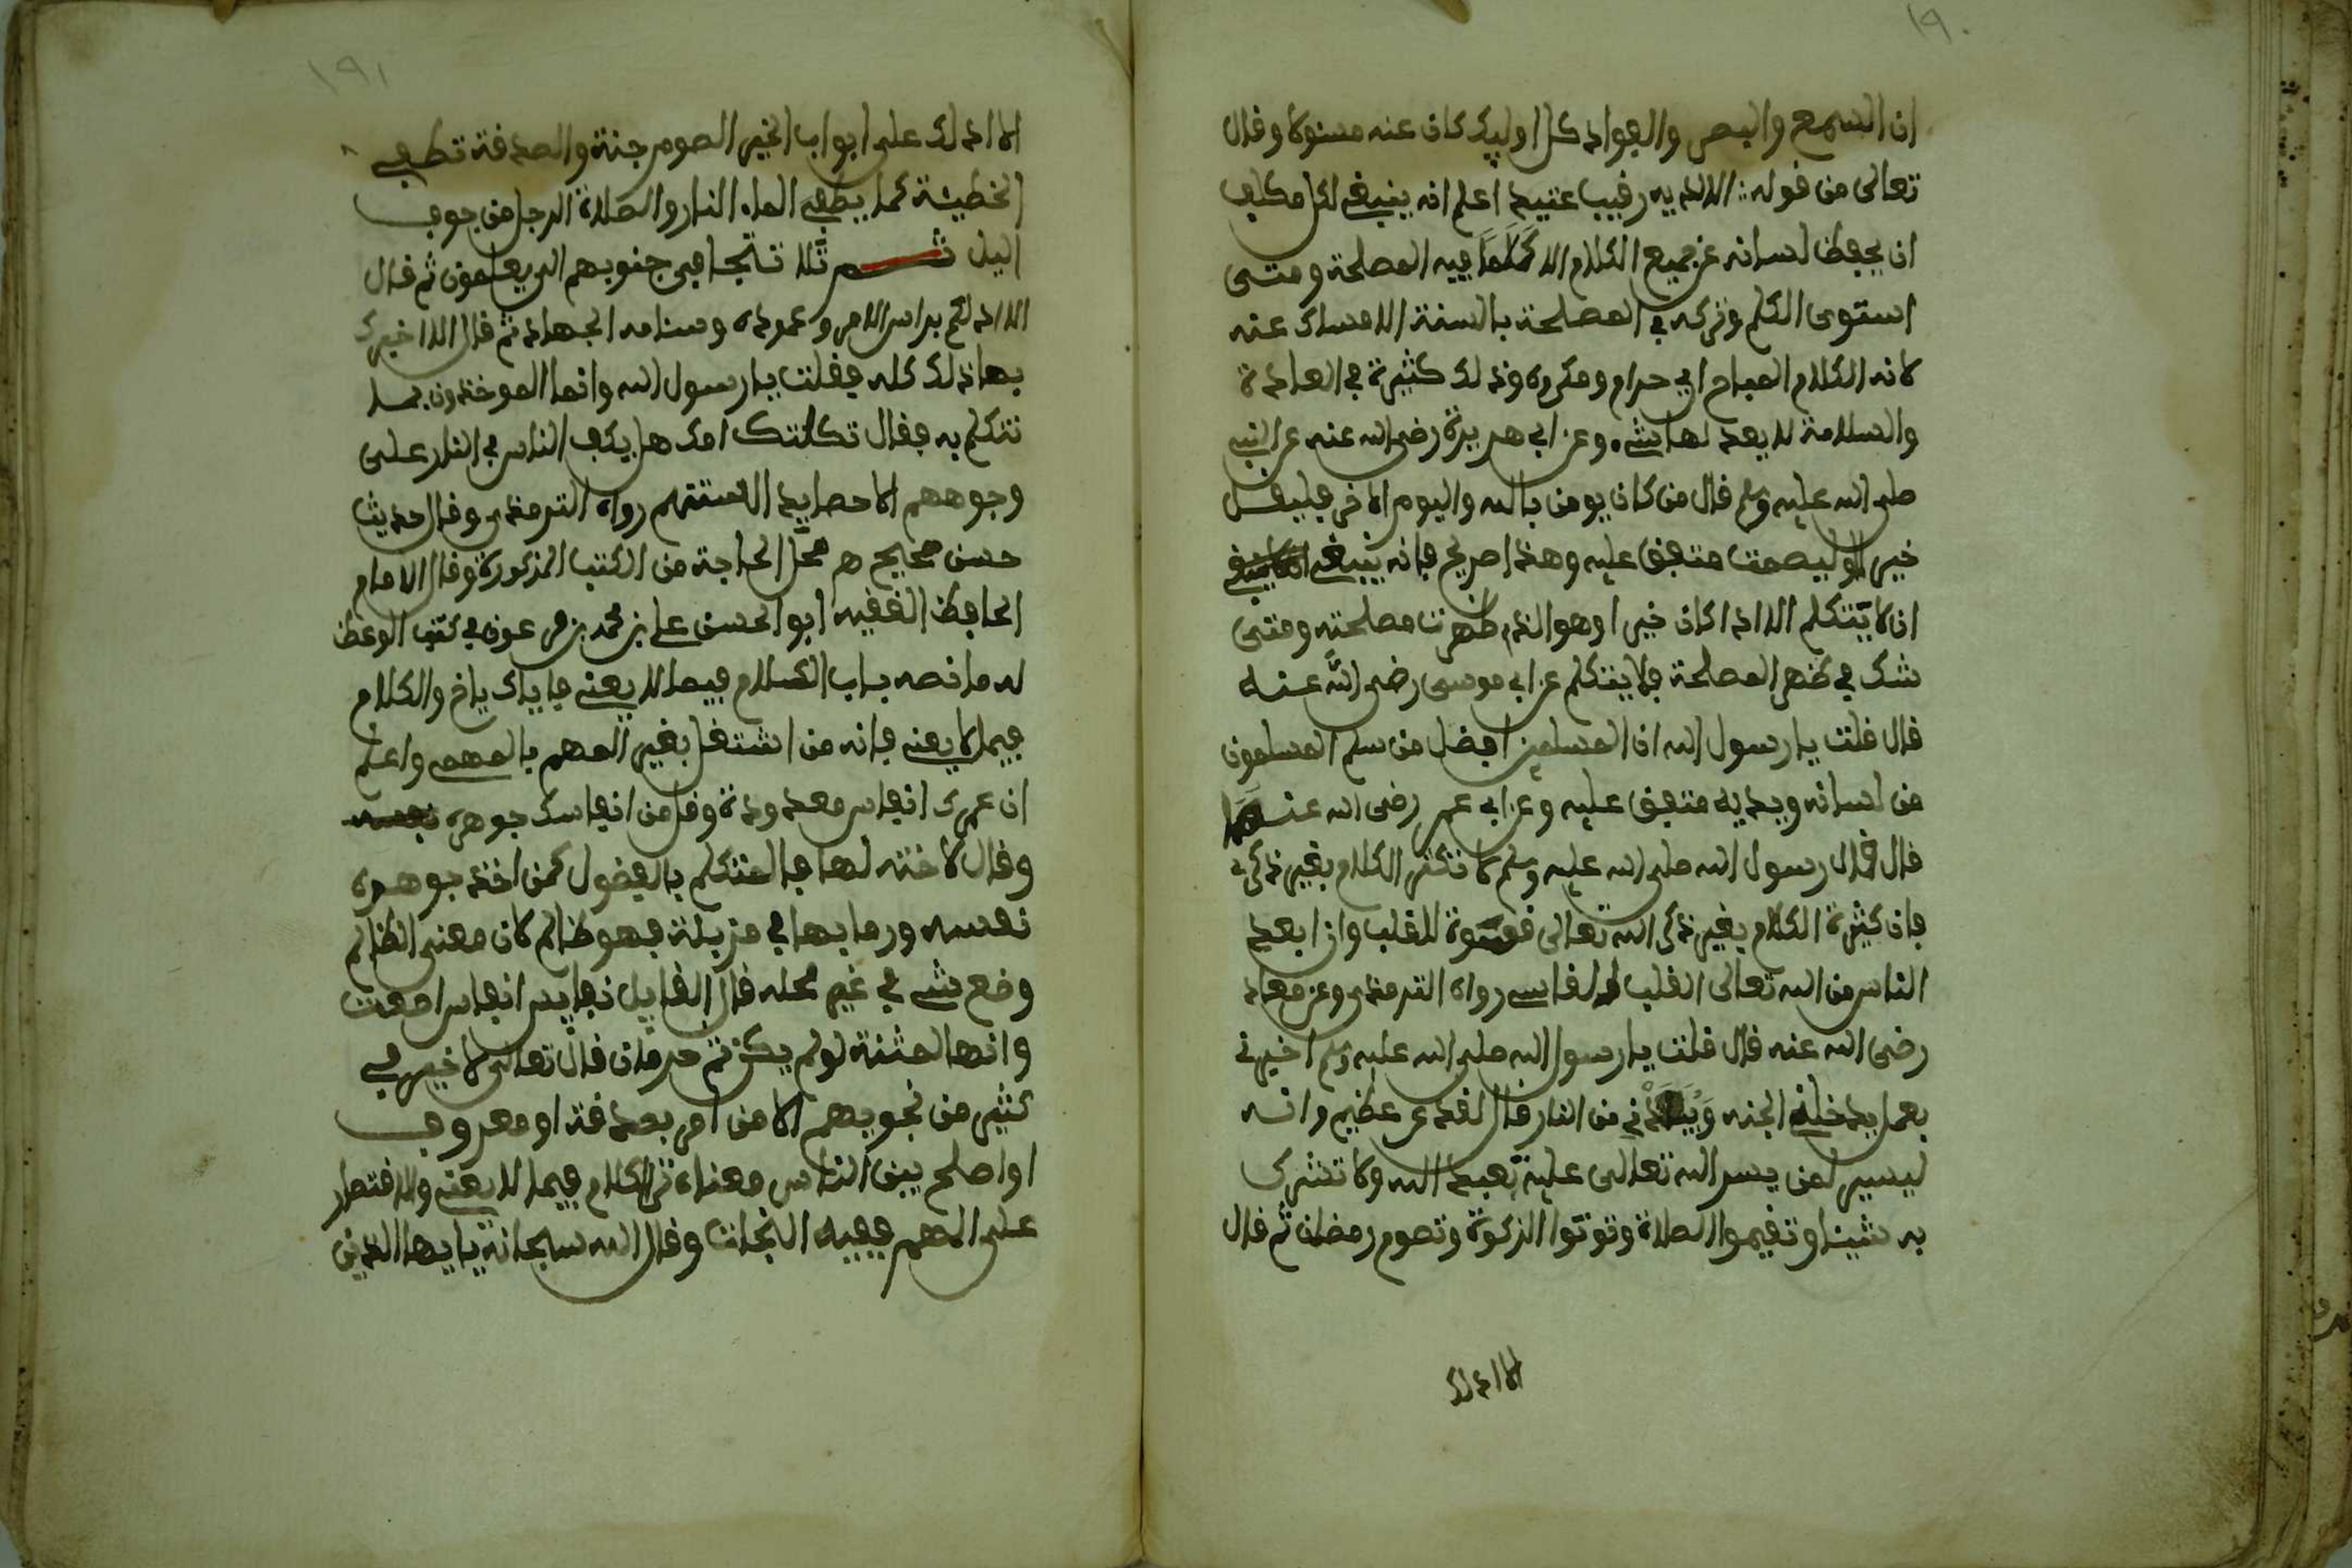 ١٩٠
ان السمع والبصر والفواد كل اوليك كان عنه مسئولا وقال
تعالى من قوله الا لديه رقيب عتيد اعلم انه ينبغي لكل مكلف
ان يحفظ لسانه عن جميع الكلام الا كلاما فيه المصلحة ومتى
استوى الكلم وتركه في المصلحة بالسنة الامساك عنه
لانه الكلام المباح الى حرام ومكروه وذلك كثيرة في العادة
والسلامة لا يعد لها شيء وعن ابي هريرة رضي الله عنه عن النبي
صلى الله عليه وسلم قال من كان يومن بالله واليوم الاخر فليقل
خيرا او ليصمت متفق عليه وهذا صريح فانه ينبغي
ان لا يتكلم الا اذا كان خيرا وهو الذي ظهرت مصلحته ومتى
شك في ظهر المصلحة فلا يتكلم عن ابي موسى رضي الله عنه
قال قلت يا رسول الله ان المسلمين افضل من سلم المسلمون
من لسانه ويديه متفق عليه وعن ابي عمر رضي الله عنهما
قال قال رسول الله صلى الله عليه وسلم لا تكثر الكلام بغير ذكر
فان كثيرة الكلام بغير ذكر الله تعالى قسوة للقلب وان ابعد
الناس من الله تعالى القلب القاسي رواه الترمذي وعن معاذ
رضي الله عنه قال قلت يا رسول الله صلى الله عليه وسلم اخبرني
بعمل يدخلني الجنه ويباعدني من النار قال لقد عن عظيم وانه
ليسير لمن يسر الله تعالى عليه تعبد الله ولا تشرك
به شيئا وتقيموا الصلاة وتوتوا الزكوة وتصوم رمضان ثم قال
الا ادلك
١٩١
الا ادلك على ابواب الخير الصوم جنة والصدقة تطفي
الخطيئة كما يطفي الماء النار والصلاة الرجل من جوف
اليل ثم تلا تتجافى جنوبهم الى يعلمون ثم قال
الا ادلكم براس الامر وعموده وسنامه الجهاد ثم قال الا اخبرك
بهاذلك كله فقلت يا رسول الله وانما الموخذون بما
نتكلم به فقال تكلتك امك هل يكب الناس في النار على
وجوههم الا حصايد السنتهم رواه الترمذي وقال حديث
حسن صحيح هم محل الحاجة من الكتب المذكورة وقال الامام
الحافظ الفقيه ابو الحسن علي بن محمد بن عون في كتب الوعظ
له ما نصه باب الكلام فيما لا يعني فاياك ياخ والكلام
فيما لا يعني فانه من اشتغل بغير المهم بالمهمه واعلم
ان عمرك انفاس معدودة وقل من انفاسك جوهرة
وقال لا ختنه لها فالمتكلم بالفضول كمن اخذ جوهرة
نفسه ورما بها في مزبلة فهو ظالم كان معنى الظالم
وضع شيء في غير محله قال القايل نفايس انفاس
وانها لمثنة لو لم يكن ثم حرمان قال تعالى لا خير في
كثير من نجويهم الا من امر بصدقة او معروف
او اصلح بين الناس معناه ترك الكلام فيما لا يعني والاقتصار
على المهم ففيه النجات وقال الله سبحانه يايها الذين